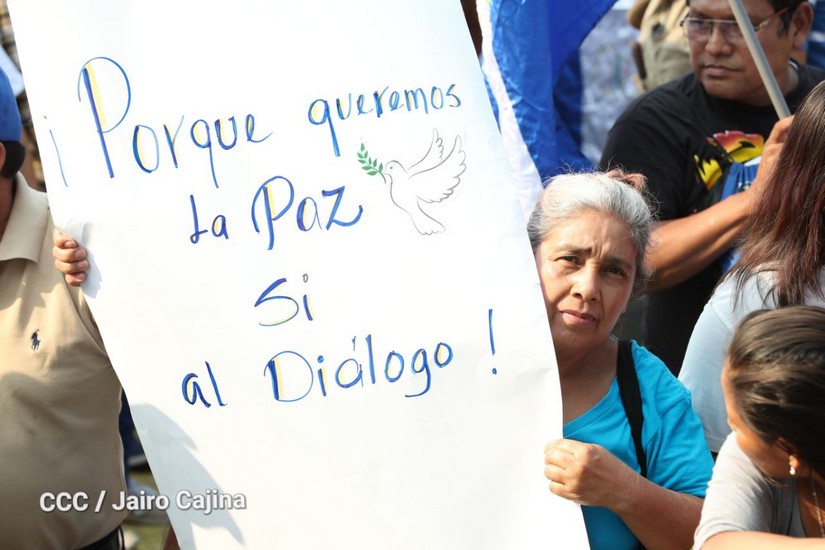 ¡Porque queremos
La Paz
Si
al Diálogo!
CCC / Jairo Cajina